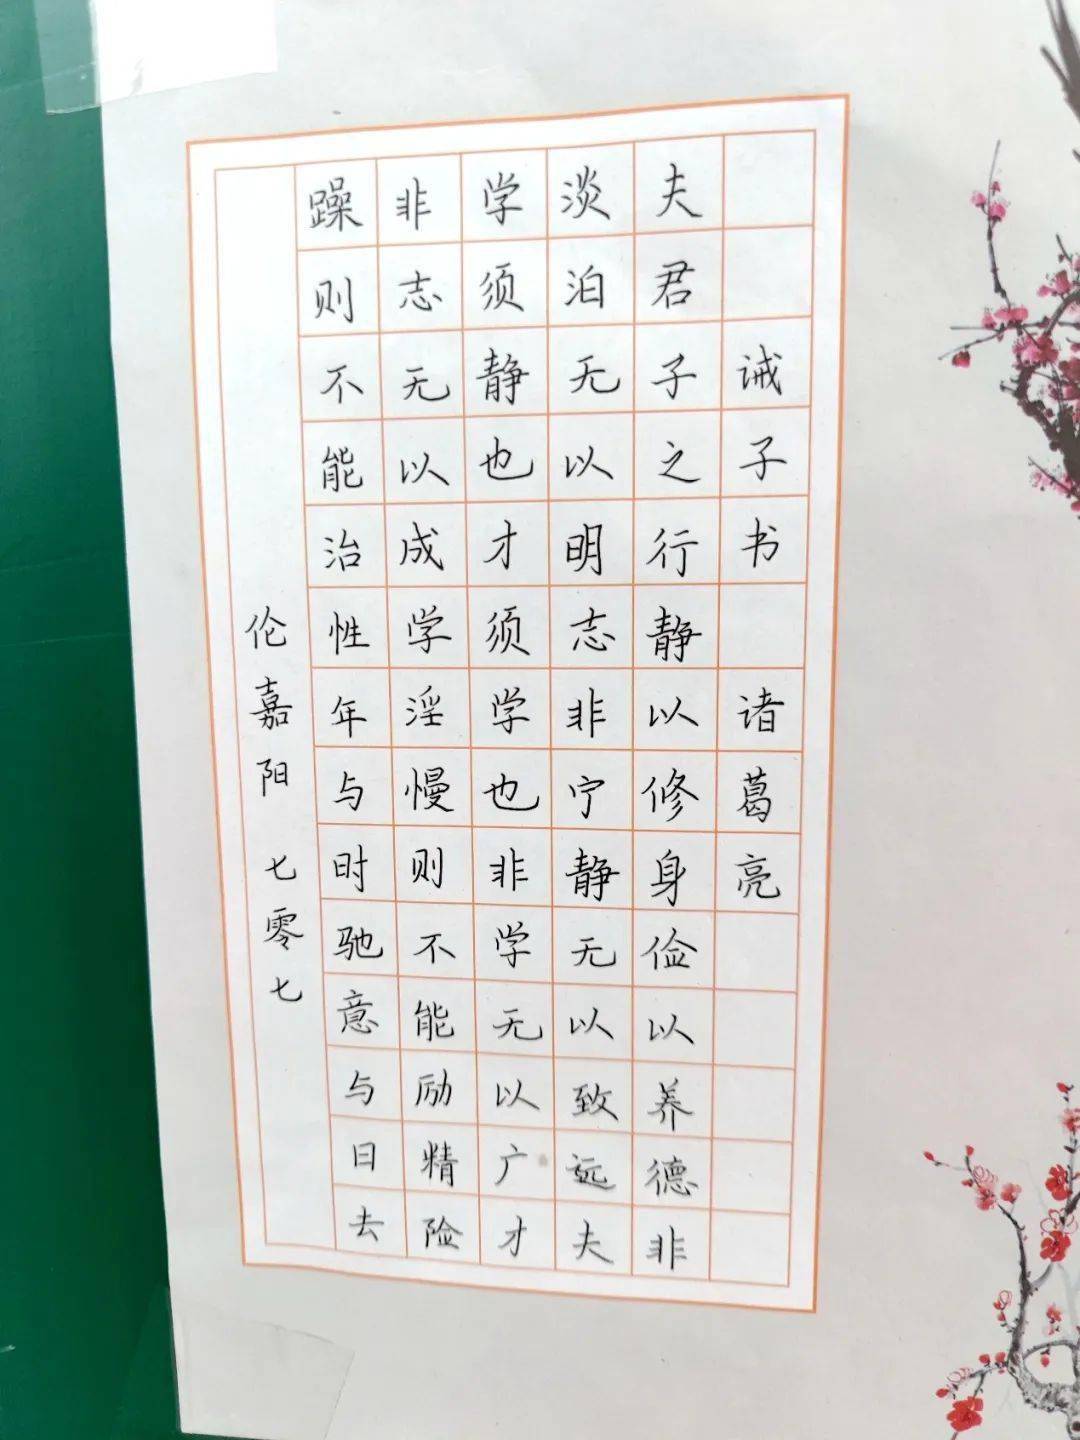 诫子书 诸葛亮
夫君子之行静以修身俭以养德非
淡泊无以明志非宁静无以致远夫
学须静也才须学也非学无以广才
非志无以成学淫慢则不能励精险
躁则不能治性年与时驰意与日去
伦嘉阳 七零七